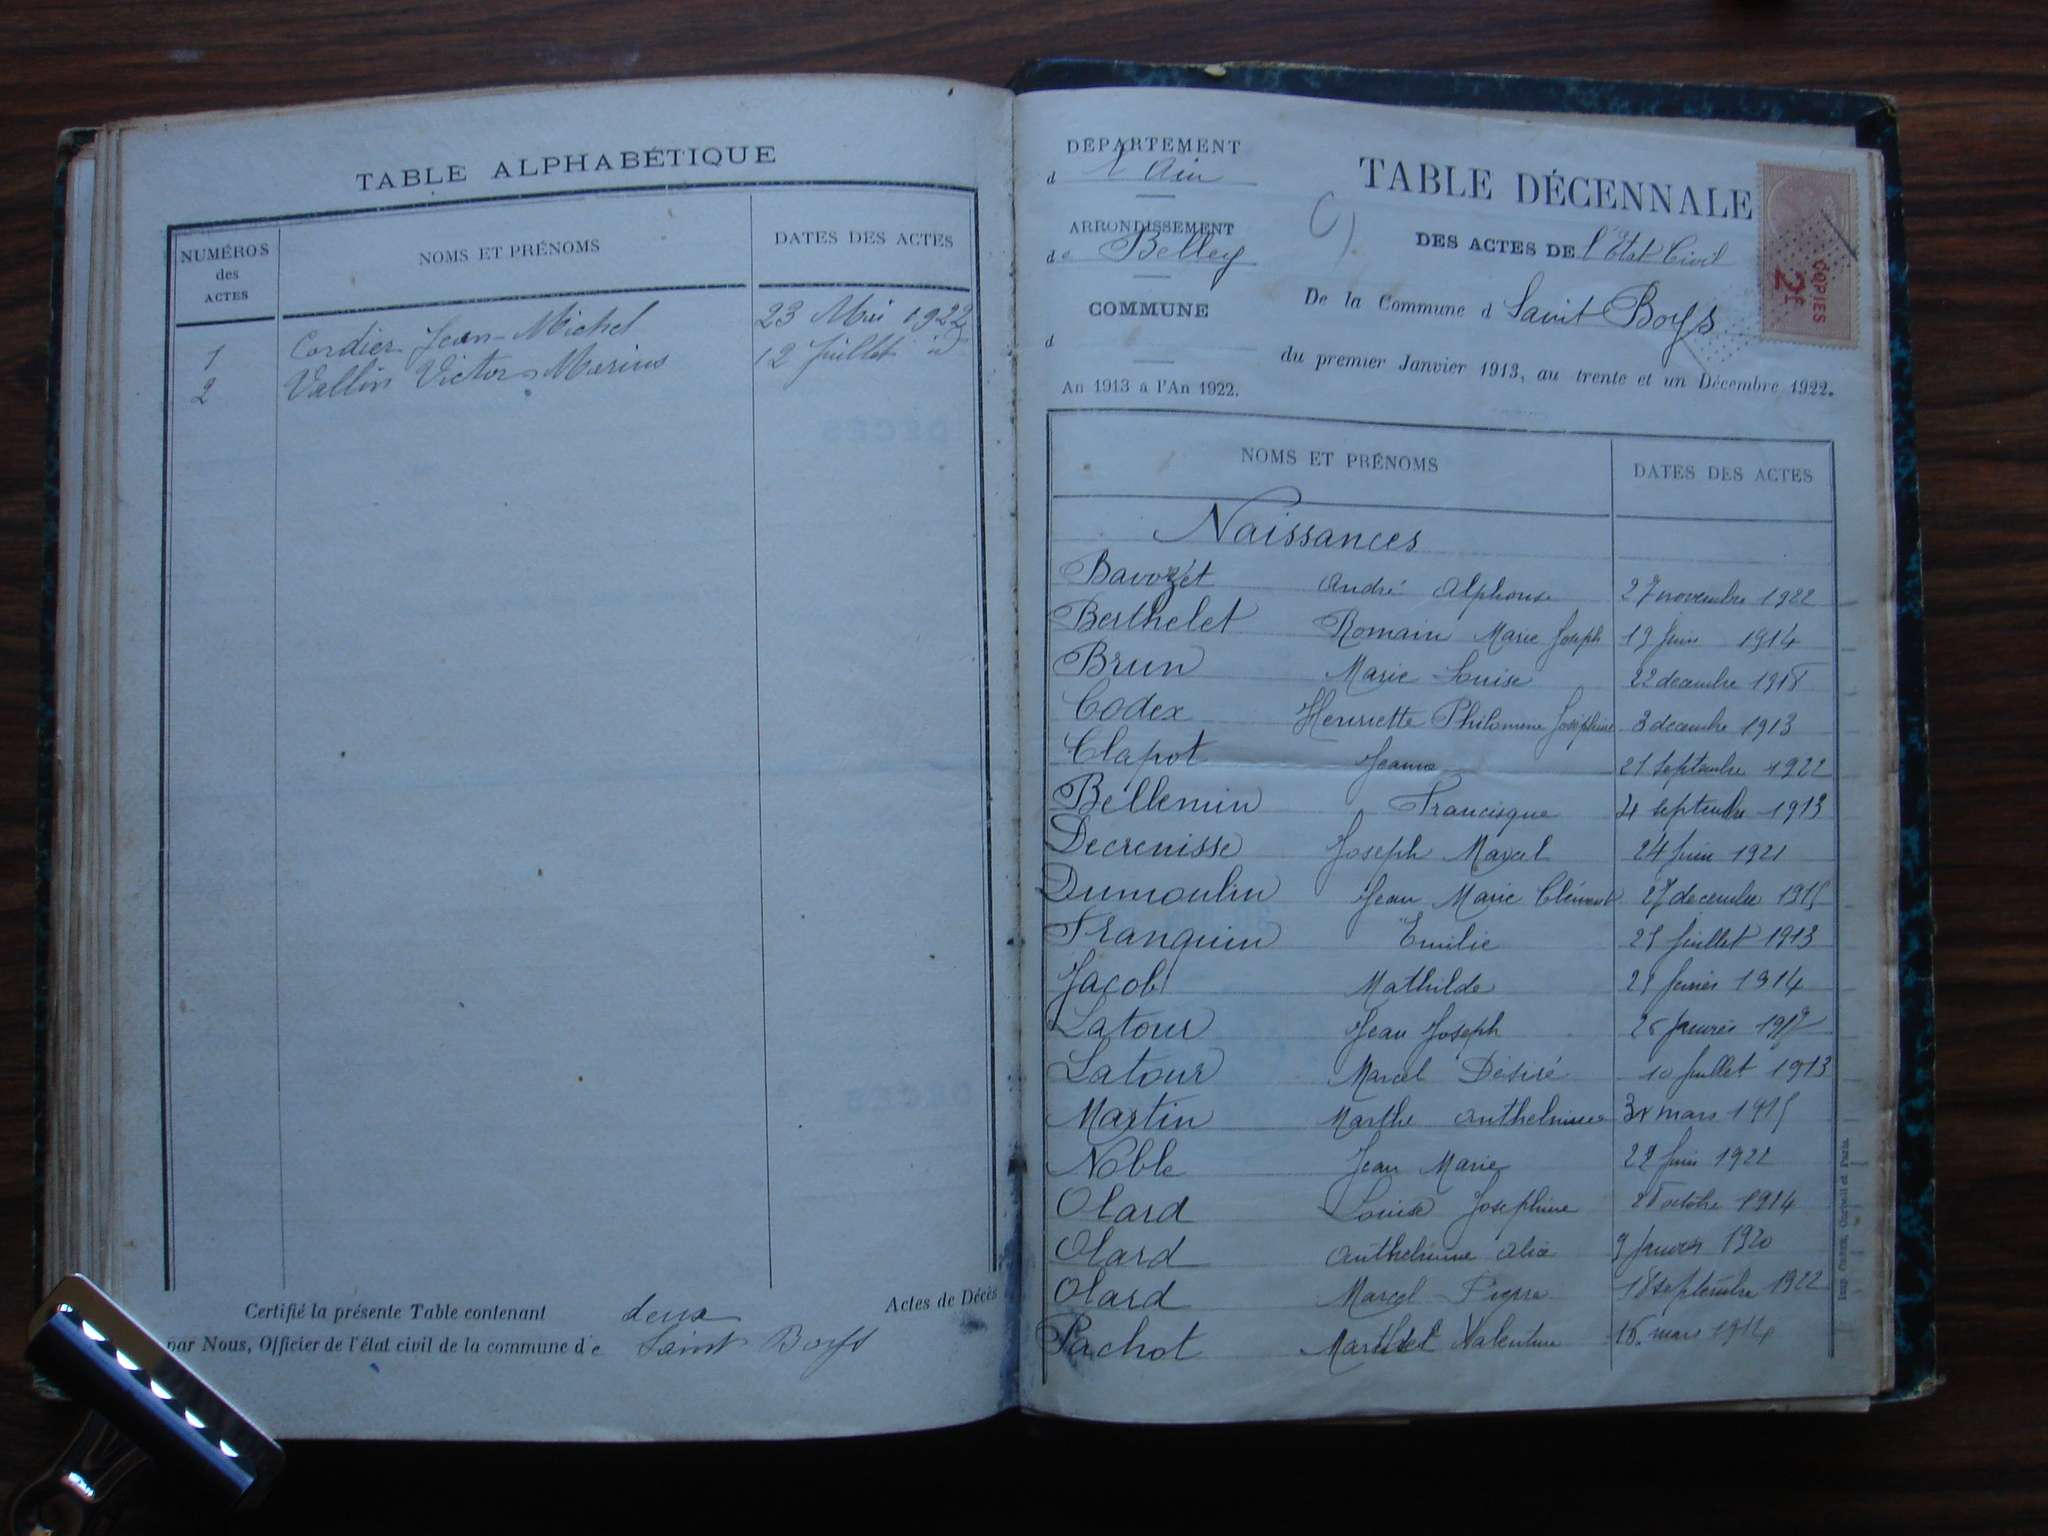 TABLE ALPHABÉTIQUE
NUMÉROS des ACTES NOMS ET PRÉNOMS DATES DES ACTES
1 Cordier Jean-Michel 23 Mai 1922
2 Vallin Victor Marius 12 Juillet id
Certifié la présente Table contenant deux Actes de Décès
par Nous, Officier de l'état civil de la commune de Saint Boys
DÉPARTEMENT
d l'Ain
ARRONDISSEMENT
de Belley
COMMUNE
d
An 1913 à l'An 1922.
TABLE DÉCENNALE
DES ACTES DE l'Etat Civil
De la Commune d Saint Boys
du premier Janvier 1913, au trente et un Décembre 1922.
COPIES 2F
NOMS ET PRÉNOMS DATES DES ACTES
Naissances
Bavozet André Alphonse 27 novembre 1922
Berthelet Romain Marie Joseph 19 juin 1914
Brun Marie Louise 22 decembre 1918
Codex Henriette Philomene Joséphine 3 decembre 1913
Clapot Jeanne 21 septembre 1922
Bellemin Francisque 4 septembre 1913
Decrenisse Joseph Marcel 24 juin 1921
Dumoulin Jean Marie Clément 27 decembre 1915
Franquin Emilie 25 juillet 1913
Jacob Mathilde 25 fevrier 1914
Latour Jean Joseph janvier
Latour Marcel Désiré 10 juillet 1913
Martin Marthe Anthelmine mars 1915
Noble Jean Marie 22 juin 1922
Olard Louise Josephine octobre 1914
Olard Anthelmine Alice 9 janvier 1920
Olard Marcel Pierre 18 septembre 1922
Pachot Valentine 16 mars 1914
Imp. Corbeil et Paris.